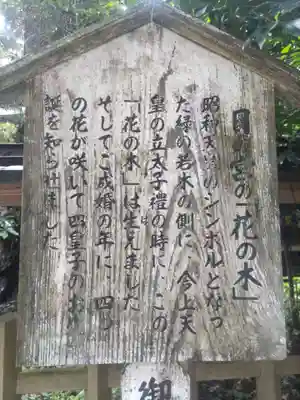 宮の「花の木」
昭和天皇のシンボルとなっ
た緑の若木の側に、今上天
皇の立太子禮の時に、この
「花の木」は生えました
そしてご成婚の年に、四つ
の花が咲いて四皇子のお
誕を知らせました
御